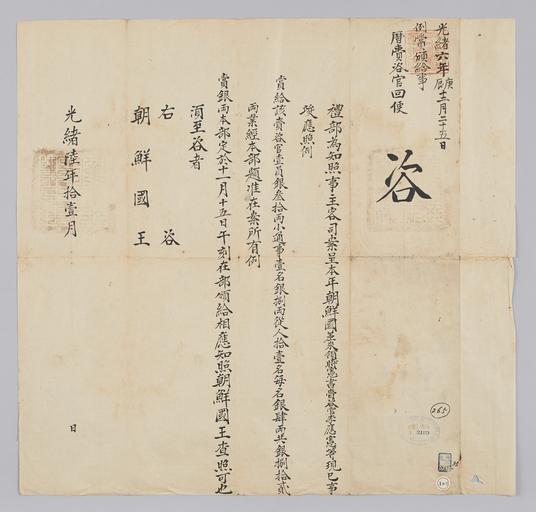 光緒六年庚辰十二月二十五日
例常頒給事
曆賫咨官回便
咨
禮部為知照事主客司案呈本年朝鮮國差來領時憲書賫咨官李應憲等現已事
竣應照例
賞給該賫咨官壹員銀叁拾兩小通事壹名銀捌兩從人拾壹名每名銀肆兩共銀捌拾貳
兩業經本部題准在案所有例
賞銀兩本部定於十一月十五日午刻在部頒給相應知照朝鮮國王查照可也
須至咨者
右咨
朝鮮國王
光緒陸年拾壹月 日
265